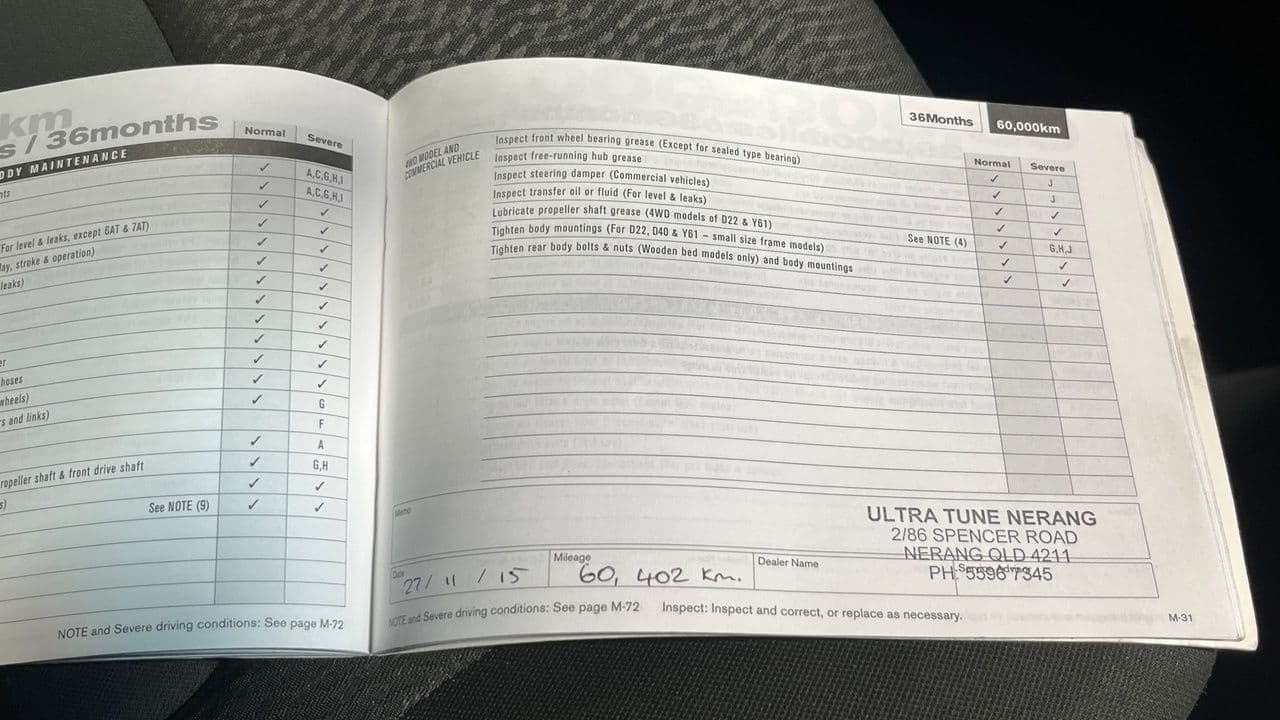 km
s / 36months
Normal
Severe
ODY MAINTENANCE
nts
✓ A,C,G,H,I
✓ A,C,G,H,I
✓ ✓
(For level & leaks, except 6AT & 7AT) ✓ ✓
lay, stroke & operation) ✓ ✓
leaks) ✓ ✓
✓ ✓
✓ ✓
✓ ✓
✓ ✓
er ✓ ✓
hoses ✓ ✓
wheels) ✓ G
s and links) F
✓ A
ropeller shaft & front drive shaft ✓ G,H
✓ ✓
s) See NOTE (9) ✓ ✓
NOTE and Severe driving conditions: See page M-72
36Months 60,000km
Normal Severe
4WD MODEL AND
COMMERCIAL VEHICLE
Inspect front wheel bearing grease (Except for sealed type bearing) ✓ J
Inspect free-running hub grease ✓ J
Inspect steering damper (Commercial vehicles) ✓ ✓
Inspect transfer oil or fluid (For level & leaks) ✓ ✓
Lubricate propeller shaft grease (4WD models of D22 & Y61) See NOTE (4) ✓ G,H,J
Tighten body mountings (For D22, D40 & Y61 – small size frame models) ✓ ✓
Tighten rear body bolts & nuts (Wooden bed models only) and body mountings ✓ ✓
Memo
ULTRA TUNE NERANG
2/86 SPENCER ROAD
NERANG QLD 4211
PH: 5596 7345
Date 27/ 11 / 15
Mileage 60, 402 Km.
Dealer Name
Service Advisor
NOTE and Severe driving conditions: See page M-72 Inspect: Inspect and correct, or replace as necessary.
M-31